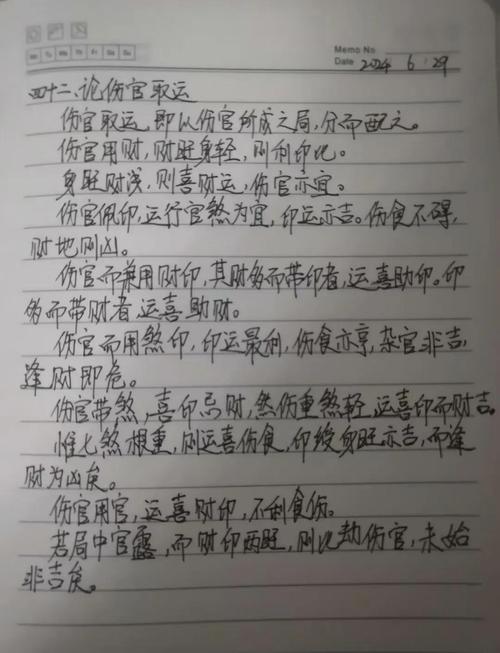 Memo No
Mo Tu We Th Fr Sa Su
Date 2024 6 29
四十二、论伤官取运
伤官取运,即以伤官所成之局,分而配之。
伤官用财,财旺身轻,则利印比。
身旺财浅,则喜财运,伤官亦宜。
伤官佩印,运行官煞为宜,印运亦吉。伤食不碍,
财地则凶。
伤官而兼用财印,其财多而带印者,运喜助印。印
多而带财者,运喜助财。
伤官而用煞印,印运最利,伤食亦亨,杂官非吉,
逢财即危。
伤官带煞,喜印忌财,然伤重煞轻,运喜印而财吉。
惟七煞根重,则运喜伤食,印绶身旺亦吉,而逢
财为凶矣。
伤官用官,运喜财印,不利食伤。
若局中官露,而财印两旺,则比劫伤官,未始
非吉矣。